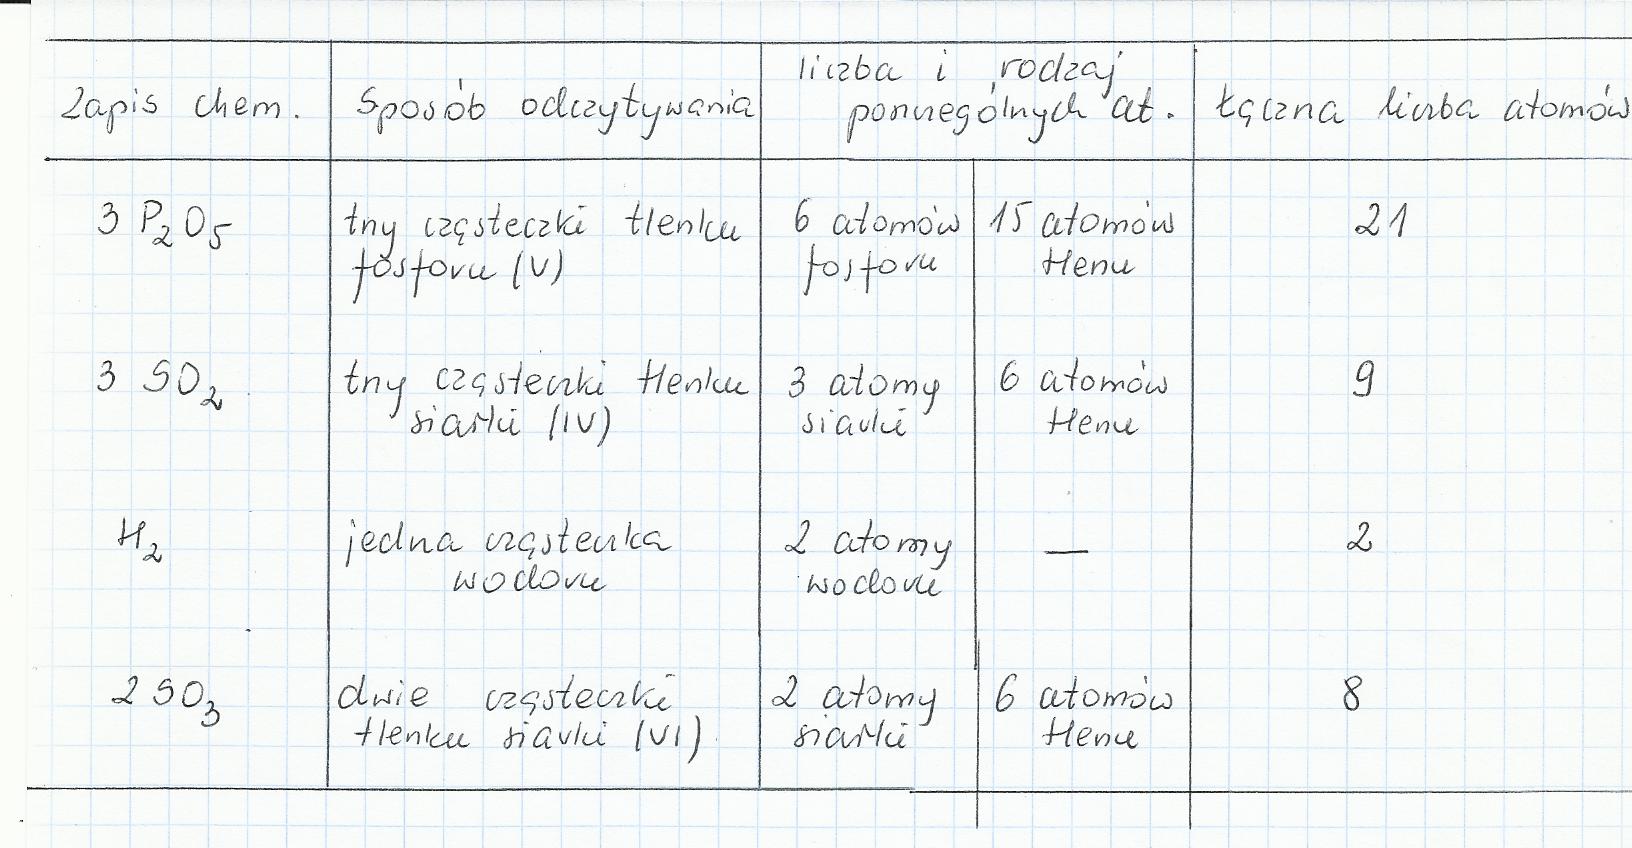 Zapis chem. Sposób odczytywania liczba i rodzaj poszczególnych at. Łączna liczba atomów
3 P₂O₅ trzy cząsteczki tlenku 6 atomów 15 atomów 21
fosforu (V) fosforu tlenu
3 SO₂ trzy cząsteczki tlenku 3 atomy 6 atomów 9
siarki (IV) siarki tlenu
H₂ jedna cząsteczka 2 atomy — 2
wodoru wodoru
2 SO₃ dwie cząsteczki 2 atomy 6 atomów 8
tlenku siarki (VI) siarki tlenu